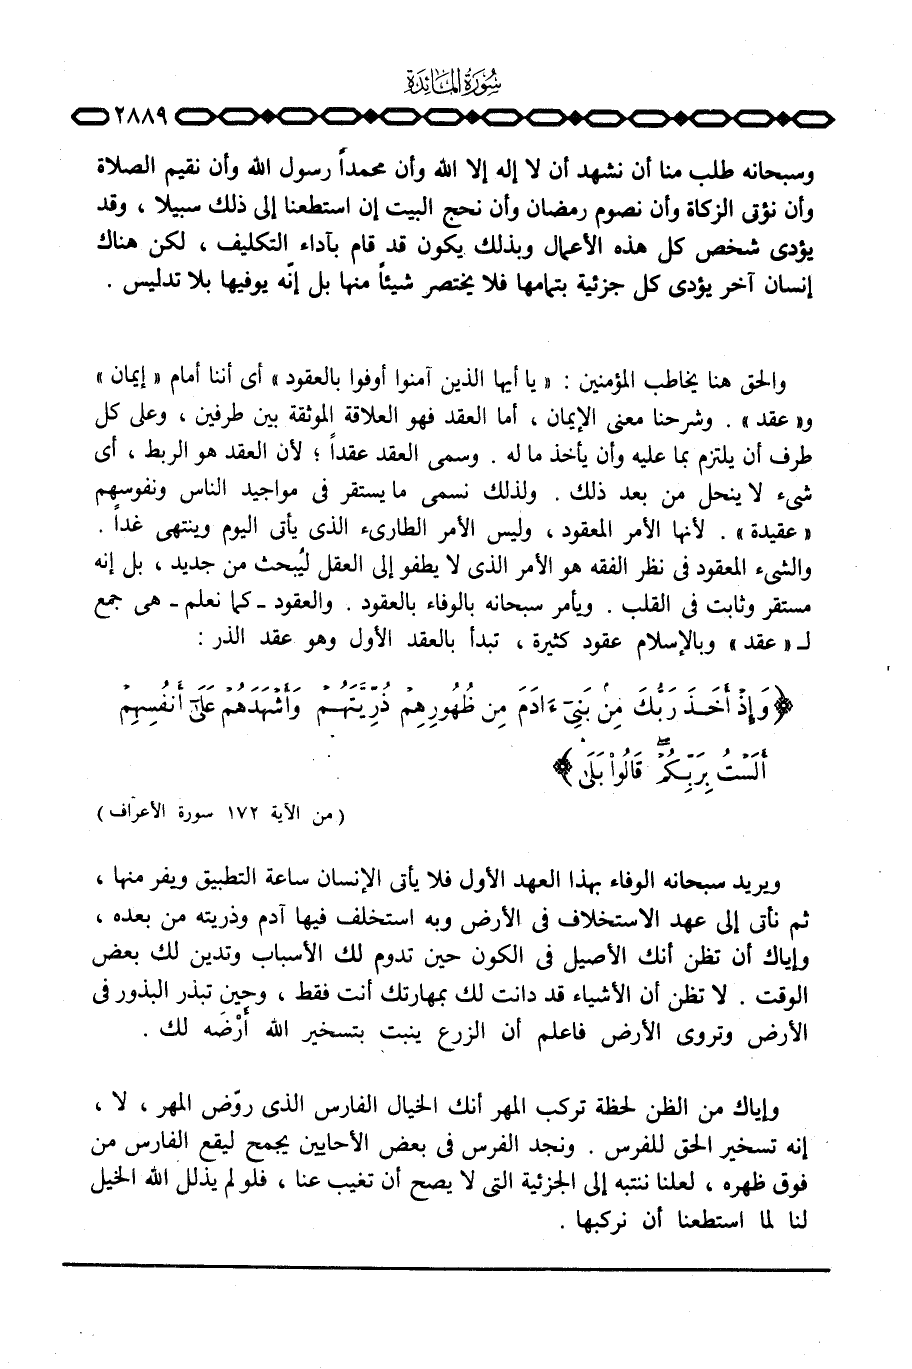 سُورَةُ المَائِدَة
٢٨٨٩
وسبحانه طلب منا أن نشهد أن لا إله إلا الله وأن محمداً رسول الله وأن نقيم الصلاة
وأن نؤتى الزكاة وأن نصوم رمضان وأن نحج البيت إن استطعنا إلى ذلك سبيلا ، وقد
يؤدى شخص كل هذه الأعمال وبذلك يكون قد قام بآداء التكليف ، لكن هناك
إنسان آخر يؤدى كل جزئية بتمامها فلا يختصر شيئاً منها بل إنّه يوفيها بلا تدليس .
والحق هنا يخاطب المؤمنين : « يا أيها الذين آمنوا أوفوا بالعقود » أى أننا أمام « إيمان »
و« عقد » . وشرحنا معنى الإيمان ، أما العقد فهو العلاقة الموثقة بين طرفين ، وعلى كل
طرف أن يلتزم بما عليه وأن يأخذ ما له . وسمى العقد عقداً ؛ لأن العقد هو الربط ، أى
شىء لا ينحل من بعد ذلك . ولذلك نسمى ما يستقر فى مواجيد الناس ونفوسهم
« عقيدة » . لأنها الأمر المعقود ، وليس الأمر الطارىء الذى يأتى اليوم وينتهى غداً .
والشىء المعقود فى نظر الفقه هو الأمر الذى لا يطفو إلى العقل ليُبحث من جديد ، بل إنه
مستقر وثابت فى القلب . ويأمر سبحانه بالوفاء بالعقود . والعقود ـ كما نعلم ـ هى جمع
لـ « عقد » وبالإسلام عقود كثيرة ، تبدأ بالعقد الأول وهو عقد الذر :
﴿ وَإِذْ أَخَذَ رَبُّكَ مِنۢ بَنِىٓ ءَادَمَ مِن ظُهُورِهِمْ ذُرِّيَّتَهُمْ وَأَشْهَدَهُمْ عَلَىٰٓ أَنفُسِهِمْ
أَلَسْتُ بِرَبِّكُمْ ۖ قَالُوا۟ بَلَىٰ ﴾
( من الآية ١٧٢ سورة الأعراف )
ويريد سبحانه الوفاء بهذا العهد الأول فلا يأتى الإنسان ساعة التطبيق ويفر منها ،
ثم نأتى إلى عهد الاستخلاف فى الأرض وبه استخلف فيها آدم وذريته من بعده ،
وإياك أن تظن أنك الأصيل فى الكون حين تدوم لك الأسباب وتدين لك بعض
الوقت . لا تظن أن الأشياء قد دانت لك بمهارتك أنت فقط ، وحين تبذر البذور فى
الأرض وتروى الأرض فاعلم أن الزرع ينبت بتسخير الله أَرْضَه لك .
وإياك من الظن لحظة تركب المهر أنك الخيال الفارس الذى روّض المهر ، لا ،
إنه تسخير الحق للفرس . ونجد الفرس فى بعض الأحايين يجمح ليقع الفارس من
فوق ظهره ، لعلنا ننتبه إلى الجزئية التى لا يصح أن تغيب عنا ، فلو لم يذلل الله الخيل
لنا لما استطعنا أن نركبها .